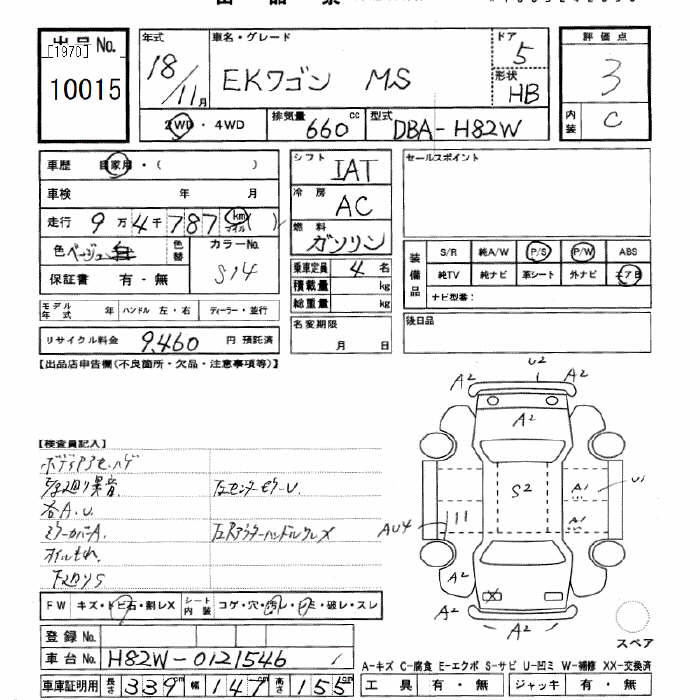 出品No.
[1970]
10015
年式 18/11月
車名・グレード
EKワゴン MS
ドア 5
形状 HB
評価点 3
内装 C
2WD・4WD
排気量 660 cc
型式 DBA-H82W
車歴 自家用・( )
車検 年 月
走行 9万4千787 km マイル( )
色 ベージュ
色替
カラーNo. S14
保証書 有・無
モデル年式 年 ハンドル 左・右 ディーラー・並行
リサイクル料金 9,460 円 預託済
シフト IAT
冷房 AC
燃料 ガソリン
乗車定員 4 名
積載量 kg
総重量 kg
名変期限 月 日
セールスポイント
装備品
S/R 純A/W P/S P/W ABS
純TV 純ナビ 革シート 外ナビ エアB
ナビ型番:
後日品
【出品店申告欄(不良箇所・欠品・注意事項等)】
【検査員記入】
各A.U.
ミラーカバーA.
オイルもれ.
下廻りS
U2
A2
A2
A2
S2
A1
U1
A1
AU4
A2
A2
A2
X
FW キズ・トビ石・割レX シート内装 コゲ・穴・汚レ・シミ・破レ・スレ
登録No.
車台No. H82W-0121546
車庫証明用 長さ 339cm 幅 147cm 高さ 155cm
スペア
A-キズ C-腐食 E-エクボ S-サビ U-凹ミ W-補修 XX-交換済
工具 有・無 ジャッキ 有・無